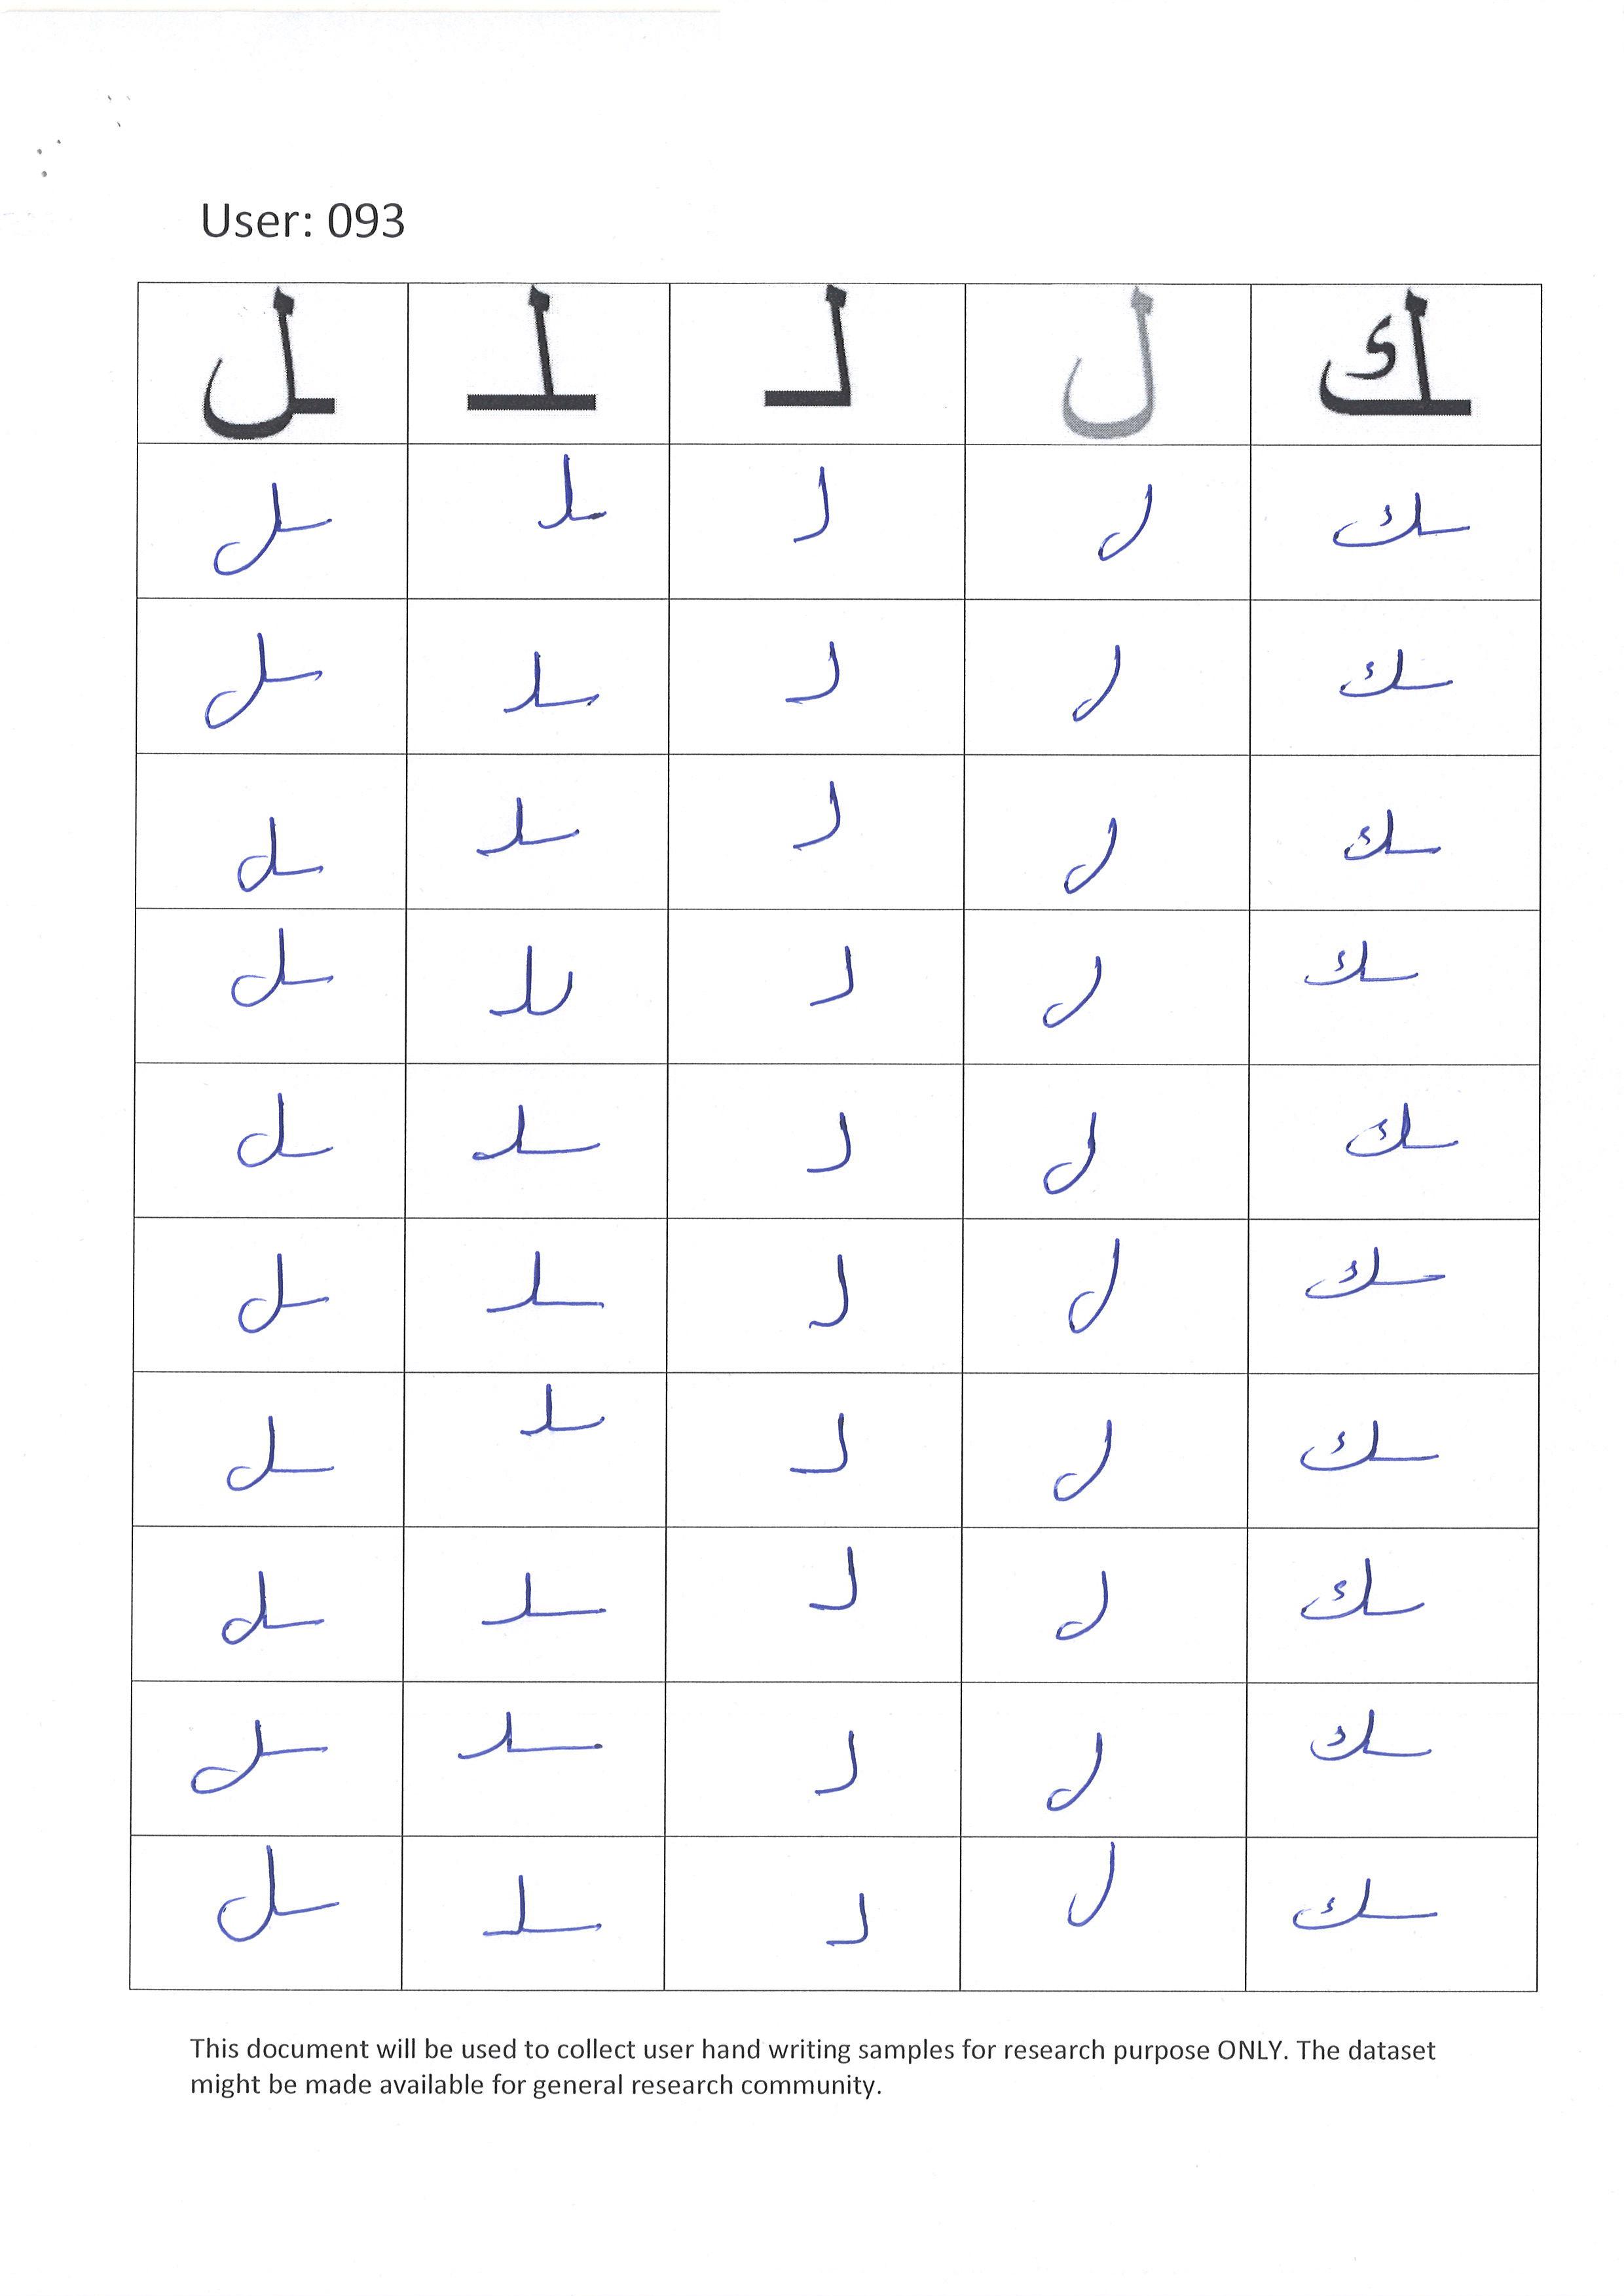 User: 093
ك ل لـ ـلـ ـل
ـك ل لـ ـلـ ـل
ـك ل لـ ـلـ ـل
ـك ل لـ ـلـ ـل
ـك ل لـ ـلـ ـل
ـك ل لـ ـلـ ـل
ـك ل لـ ـلـ ـل
ـك ل لـ ـلـ ـل
ـك ل لـ ـلـ ـل
ـك ل لـ ـلـ ـل
ـك ل لـ ـلـ ـل
This document will be used to collect user hand writing samples for research purpose ONLY. The dataset
might be made available for general research community.